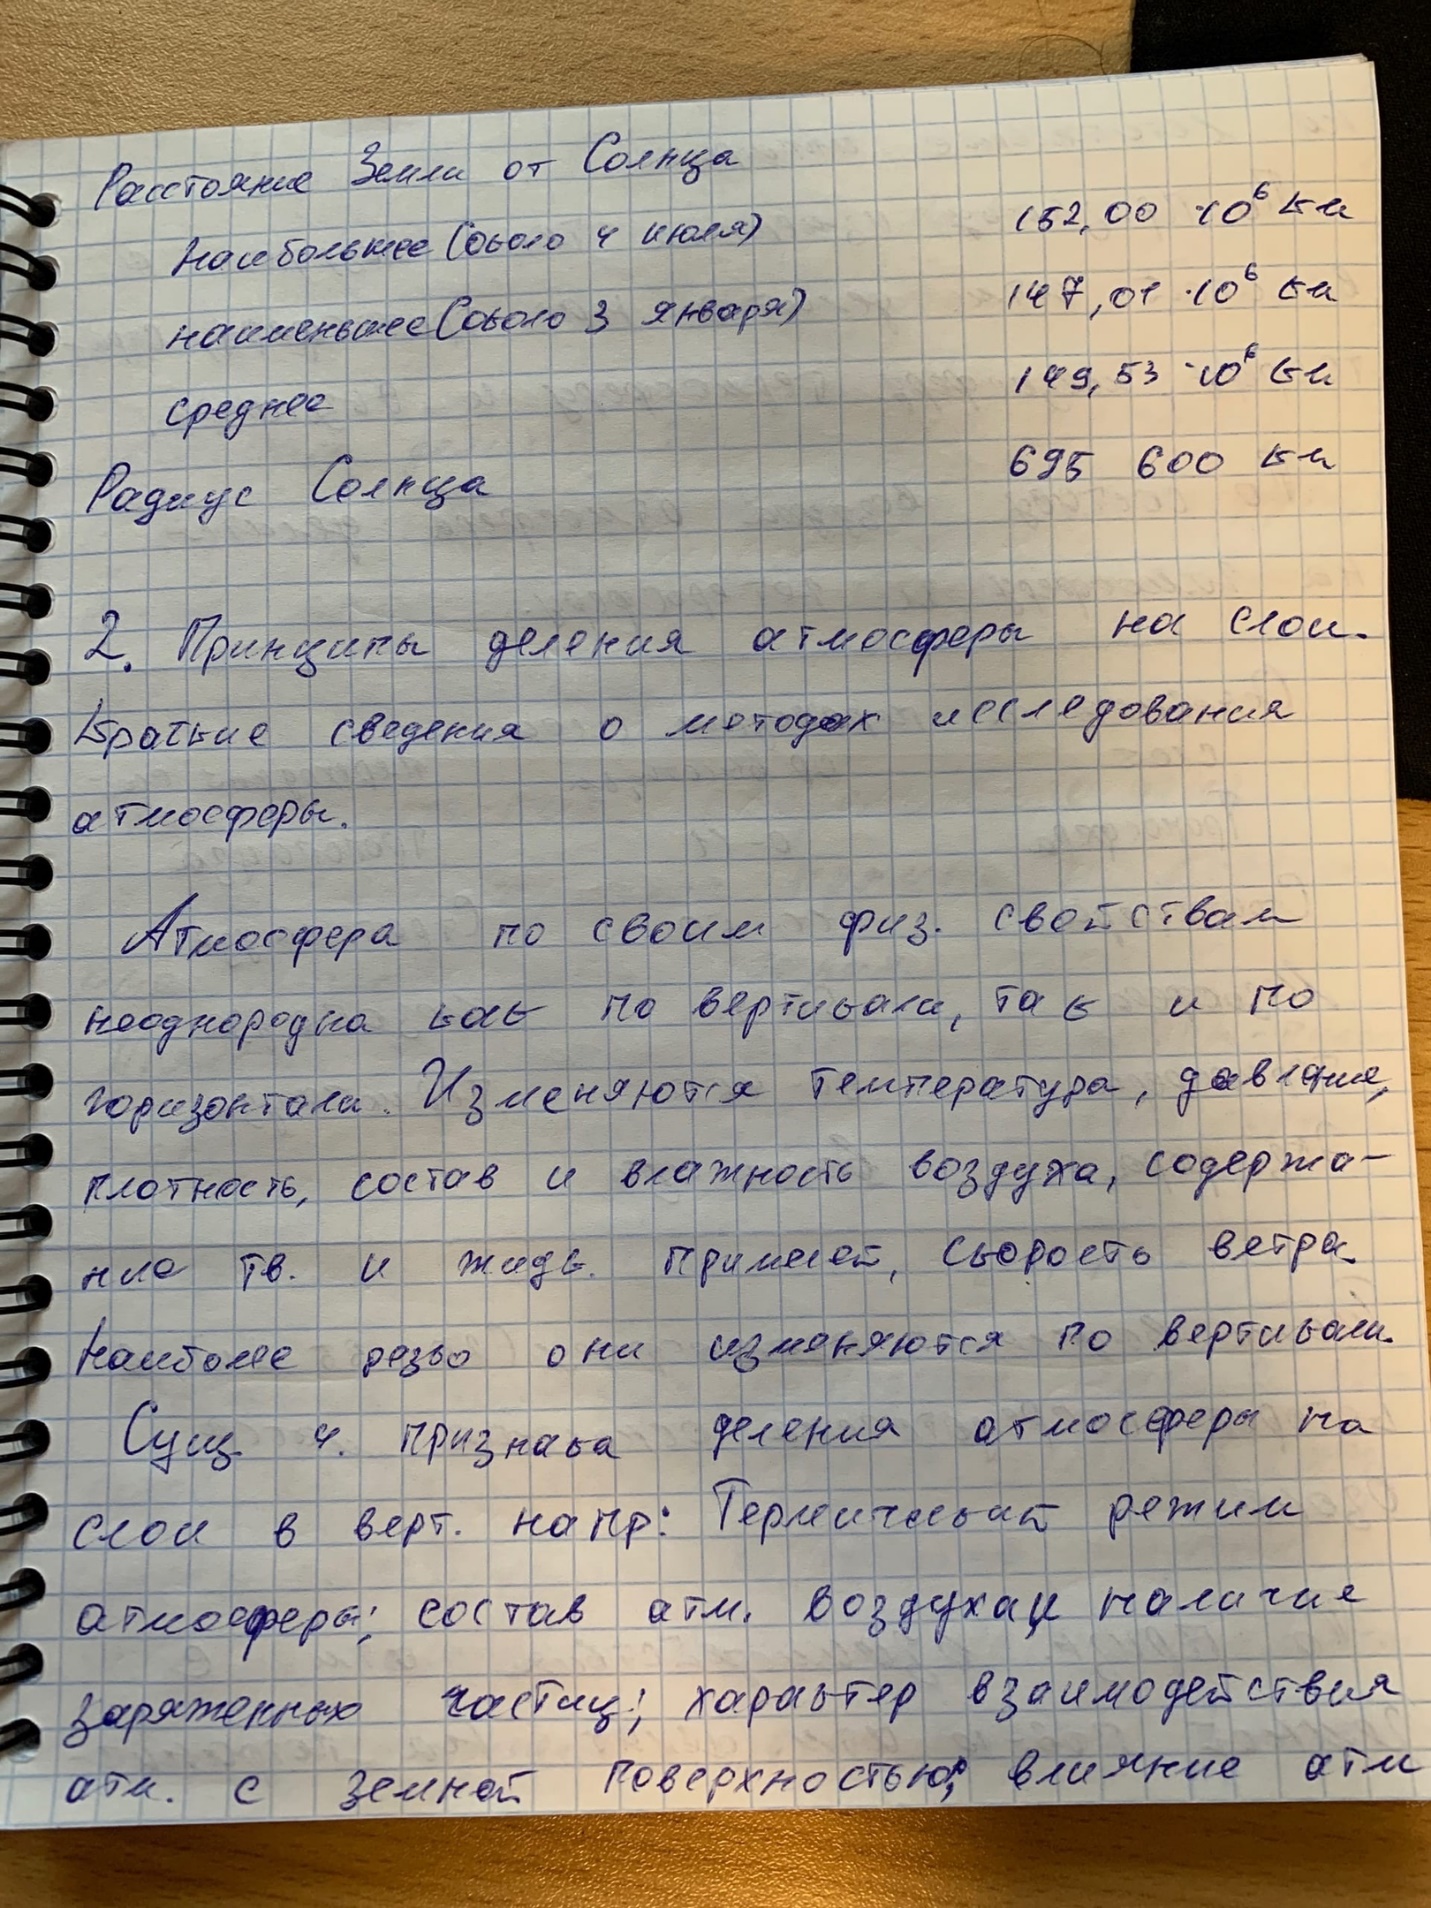 Расстояние Земли от Солнца
наибольшее (около 4 июля) 152,00 · 10⁶ км
наименьшее (около 3 января) 147,01 · 10⁶ км
среднее 149,53 · 10⁶ км
Радиус Солнца 695 600 км
2. Принципы деления атмосферы на слои.
Краткие сведения о методах исследования
атмосферы.
Атмосфера по своим физ. свойствам
неоднородна как по вертикали, так и по
горизонтали. Изменяются температура, давление,
плотность, состав и влажность воздуха, содержа-
ние тв. и жидк. примесей, скорость ветра.
Наиболее резко они изменяются по вертикали.
Сущ. 4. признака деления атмосферы на
слои в верт. напр: Термический режим
атмосферы; состав атм. воздуха и наличие
заряженных частиц; характер взаимодействия
атм. с земной поверхностью; влияние атм